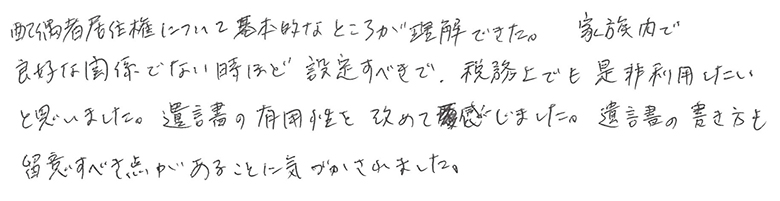 配偶者居住権について基本的なところが理解できた。 家族内で
良好な関係でない時ほど設定すべきで、税務上でも是非利用したい
と思いました。遺言書の有用性を改めて感じました。遺言書の書き方も
留意すべき点があることに気づかされました。